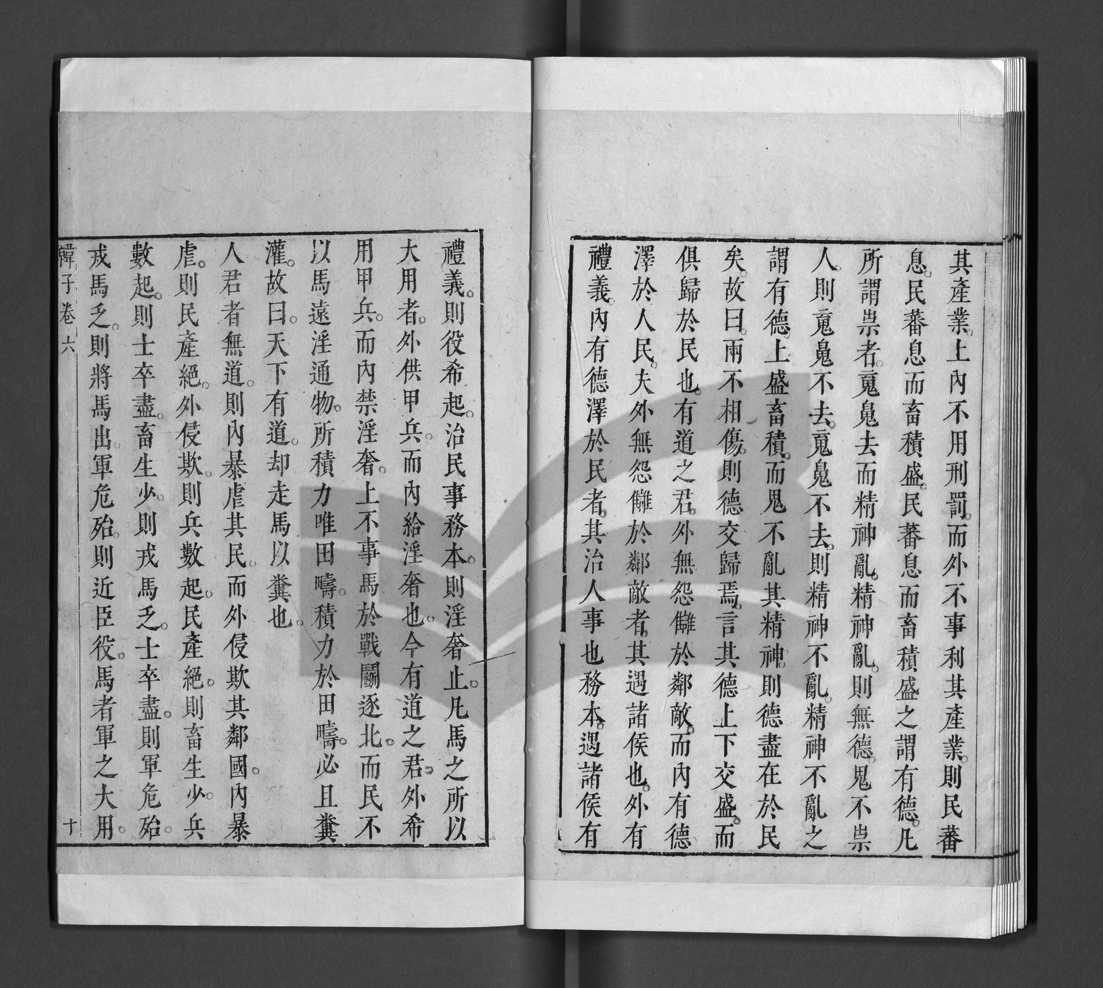 其產業。上內不用刑罰。而外不事利其產業。則民蕃
息。民蕃息而畜積盛。民蕃息而畜積盛之謂有德。凡
所謂祟者。䰟鬼去而精神亂。精神亂。則無德。鬼不祟
人。則䰟鬼不去。䰟鬼不去。則精神不亂。精神不亂之
謂有德。上盛畜積。而鬼不亂其精神。則德盡在於民
矣。故曰。兩不相傷。則德交歸焉。言其德上下交盛。而
俱歸於民也。有道之君。外無怨讎於鄰敵。而內有德
澤於人民。夫外無怨讎於鄰敵者。其遇諸侯也。外有
禮義。內有德澤於民者。其治人事也務本。遇諸侯有
禮義。則役希起。治民事務本。則淫奢止。凡馬之所以
大用者。外供甲兵。而內給淫奢也。今有道之君。外希
用甲兵。而內禁淫奢。上不事馬於戰鬬逐北。而民不
以馬遠淫通物。所積力唯田疇。積力於田疇。必且糞
灌。故曰。天下有道。却走馬以糞也。
人君者無道。則內暴虐其民。而外侵欺其鄰國。內暴
虐。則民產絕。外侵欺。則兵數起。民產絕。則畜生少。兵
數起。則士卒盡。畜生少。則戎馬乏。士卒盡。則軍危殆。
戎馬乏。則將馬出。軍危殆。則近臣役。馬者軍之大用。
韓子卷六 十